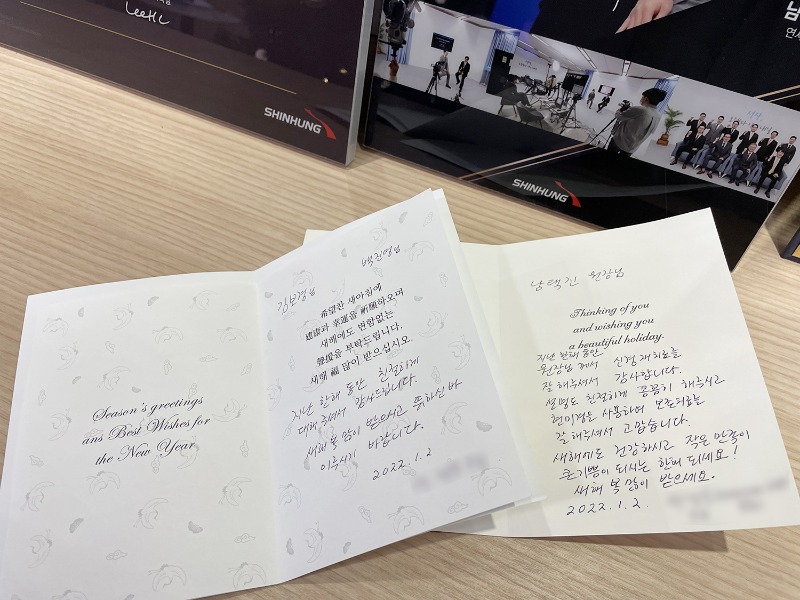 LeeHC
SHINHUNG
SHINHUNG
Season's greetings
ans Best Wishes for
the New Year
백진영님
김보경님
希望찬 새아침에
健康과 幸運을 祈願하오며
새해에도 변함없는
聲援을 부탁드립니다.
새해 福 많이 받으십시오
지난 한해 동안 친절하게
대해주셔서 감사드립니다.
새해 복 많이 받으시고 뜻하신 바
이루시기 바랍니다.
2022.1.2
남택진 원장님
Thinking of you
and wishing you
a beautiful holiday.
지난 한해 동안
원장님 께서 신경재치료를
잘 해주셔서 감사합니다.
설명도 친절하게 꼼꼼히 해주시고
현미경을 사용하여 보존치료를
잘 해주셔서 고맙습니다.
새해에도 건강하시고 작은 만족이
큰기쁨이 되시는 한해 되세요!
새해 복 많이 받으세요.
2022.1.2.